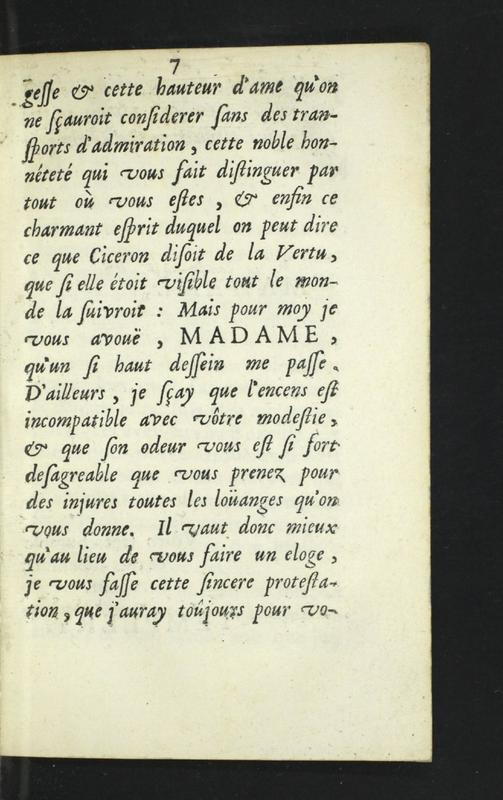 7
gesse & cette hauteur d'ame qu'on
ne sçauroit considerer sans des tran-
sports d'admiration, cette noble hon-
néteté qui vous fait distinguer par
tout où vous estes, & enfin ce
charmant esprit duquel on peut dire
ce que Ciceron disoit de la Vertu,
que si elle étoit visible tout le mon-
de la suivroit : Mais pour moy je
vous avouë, MADAME,
qu'un si haut dessein me passe.
D'ailleurs, je sçay que l'encens est
incompatible avec vôtre modestie,
& que son odeur vous est si fort
desagreable que vous prenez pour
des injures toutes les loüanges qu'on
vous donne. Il vaut donc mieux
qu'au lieu de vous faire un eloge,
je vous fasse cette sincere protesta-
tion, que j'auray toûjours pour vo-